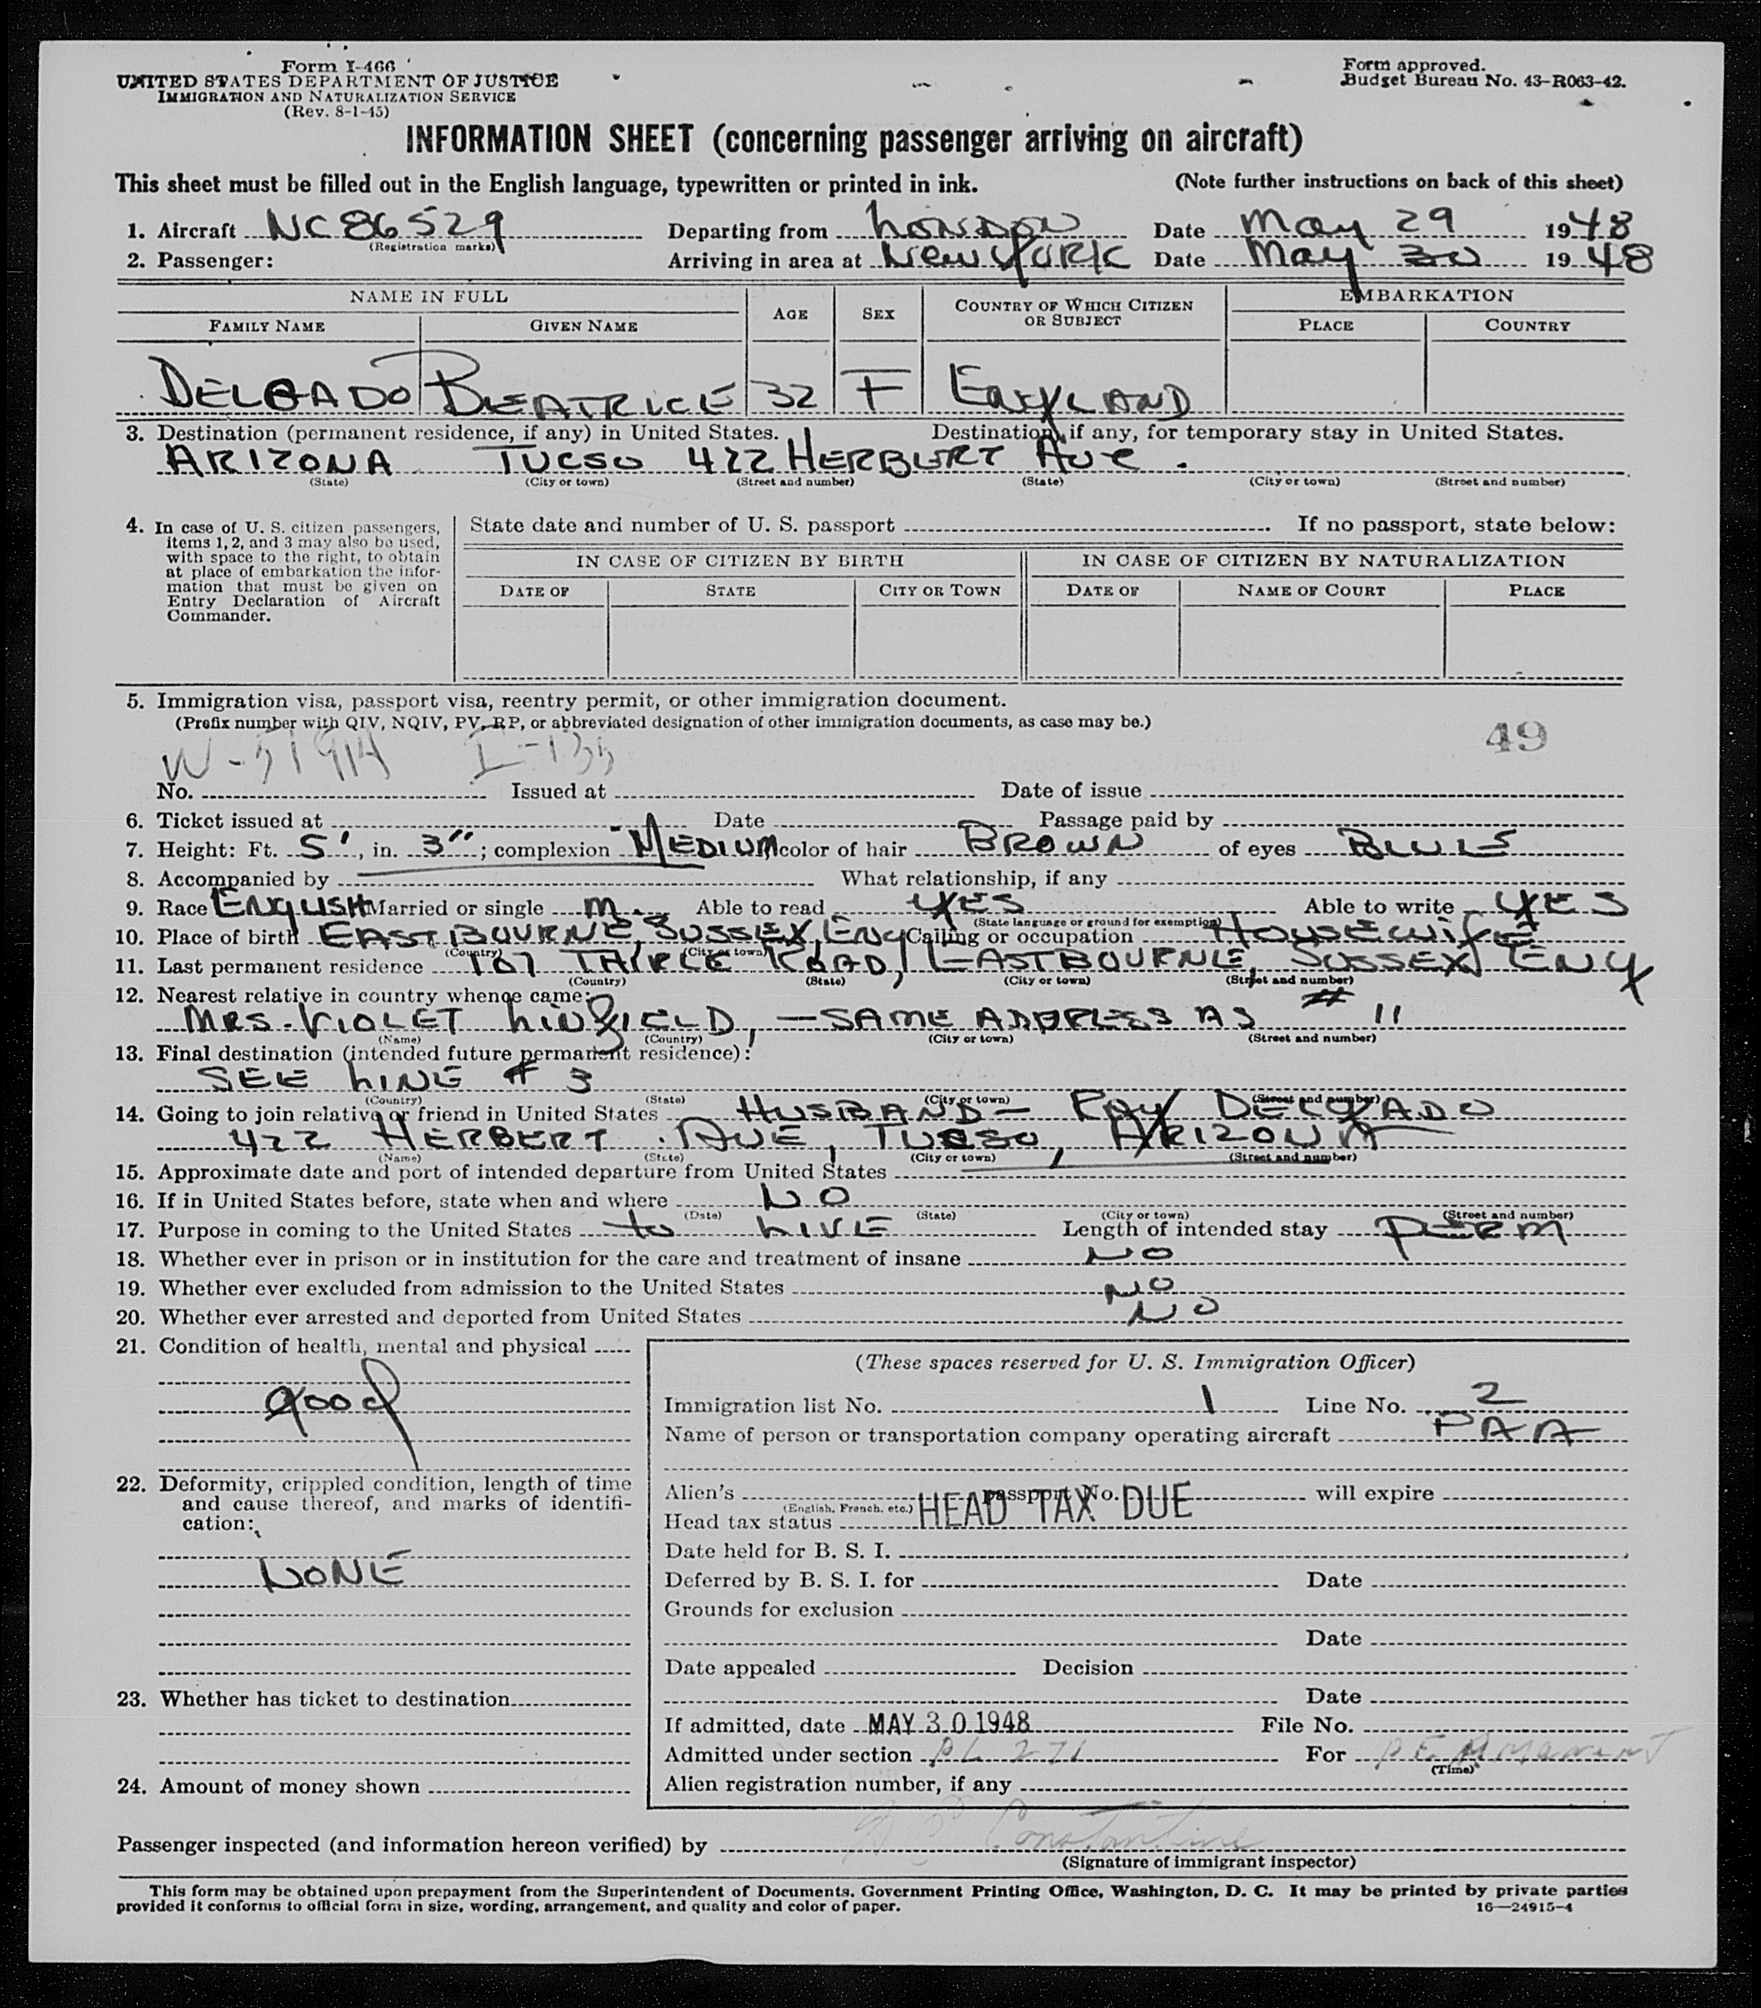 Form I-466
UNITED STATES DEPARTMENT OF JUSTICE
IMMIGRATION AND NATURALIZATION SERVICE
(Rev. 8-1-45)
Form approved.
Budget Bureau No. 43-R063-42.
INFORMATION SHEET (concerning passenger arriving on aircraft)
This sheet must be filled out in the English language, typewritten or printed in ink. (Note further instructions on back of this sheet)
1. Aircraft NC 86529 Departing from LONDON Date May 29 1948
(Registration marks)
2. Passenger: Arriving in area at New YORK Date May 30 1948
NAME IN FULL AGE SEX COUNTRY OF WHICH CITIZEN OR SUBJECT EMBARKATION
FAMILY NAME GIVEN NAME PLACE COUNTRY
DELGADO BEATRICE 32 F ENGLAND
3. Destination (permanent residence, if any) in United States. Destination, if any, for temporary stay in United States.
ARIZONA TUCSO 422 HERBURT AVE.
(State) (City or town) (Street and number) (State) (City or town) (Street and number)
4. In case of U. S. citizen passengers, items 1, 2, and 3 may also be used, with space to the right, to obtain at place of embarkation the information that must be given on Entry Declaration of Aircraft Commander.
State date and number of U. S. passport If no passport, state below:
IN CASE OF CITIZEN BY BIRTH IN CASE OF CITIZEN BY NATURALIZATION
DATE OF STATE CITY OR TOWN DATE OF NAME OF COURT PLACE
5. Immigration visa, passport visa, reentry permit, or other immigration document.
(Prefix number with QIV, NQIV, PV, RP, or abbreviated designation of other immigration documents, as case may be.)
49
No. Issued at Date of issue
6. Ticket issued at Date Passage paid by
7. Height: Ft. 5', in. 3"; complexion MEDIUM color of hair BROWN of eyes BLUE
8. Accompanied by What relationship, if any
9. Race ENGLISH Married or single M. Able to read YES Able to write YES
(State language or ground for exemption)
10. Place of birth EASTBOURNE, SUSSEX, ENG Calling or occupation HOUSEWIFE
(Country) (City or town)
11. Last permanent residence 107 ROAD, EASTBOURNE, SUSSEX ENG
(Country) (State) (City or town) (Street and number)
12. Nearest relative in country whence came:
MRS. VIOLET LINFIELD, — SAME ADDRESS AS # 11
(Name) (Country) (City or town) (Street and number)
13. Final destination (intended future permanent residence):
SEE LINE # 3
(Country) (State) (City or town) (Street and number)
14. Going to join relative or friend in United States HUSBAND — RAY DELGADO
422 HERBERT AVE, TUCSO, ARIZONA
(Name) (State) (City or town) (Street and number)
15. Approximate date and port of intended departure from United States
16. If in United States before, state when and where NO
(Date) (State) (City or town) (Street and number)
17. Purpose in coming to the United States to LIVE Length of intended stay PERM
18. Whether ever in prison or in institution for the care and treatment of insane NO
19. Whether ever excluded from admission to the United States NO
20. Whether ever arrested and deported from United States NO
21. Condition of health, mental and physical
good
22. Deformity, crippled condition, length of time and cause thereof, and marks of identification:
NONE
23. Whether has ticket to destination
24. Amount of money shown
(These spaces reserved for U. S. Immigration Officer)
Immigration list No. 1 Line No. 2
Name of person or transportation company operating aircraft PAA
Alien's passport No. will expire
(English, French, etc.)
Head tax status HEAD TAX DUE
Date held for B. S. I.
Deferred by B. S. I. for Date
Grounds for exclusion
Date
Date appealed Decision
Date
If admitted, date MAY 30 1948 File No.
Admitted under section PL 271 For PERMANENT
(Time)
Alien registration number, if any
Passenger inspected (and information hereon verified) by Constantine
(Signature of immigrant inspector)
This form may be obtained upon prepayment from the Superintendent of Documents, Government Printing Office, Washington, D. C. It may be printed by private parties
provided it conforms to official form in size, wording, arrangement, and quality and color of paper.
16—24915-4